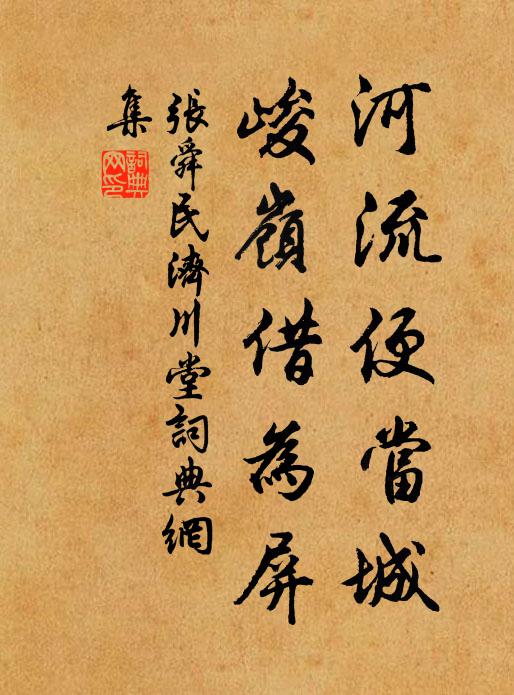 河流便當城
峻嶺借為屏
張舜民濟川堂詞典網
集
詞典網印